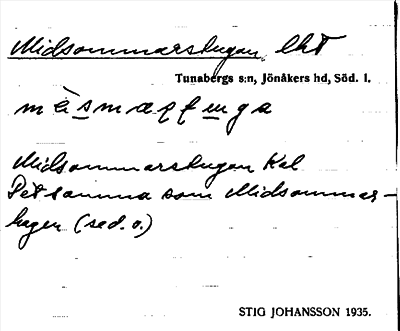 Midsommarstugan, lht
Tunabergs s:n, Jönåkers hd, Söd. l.
Midsommarstugan Kal
Det samma som Midsommar-
hagen (se d. o.)
STIG JOHANSSON 1935.